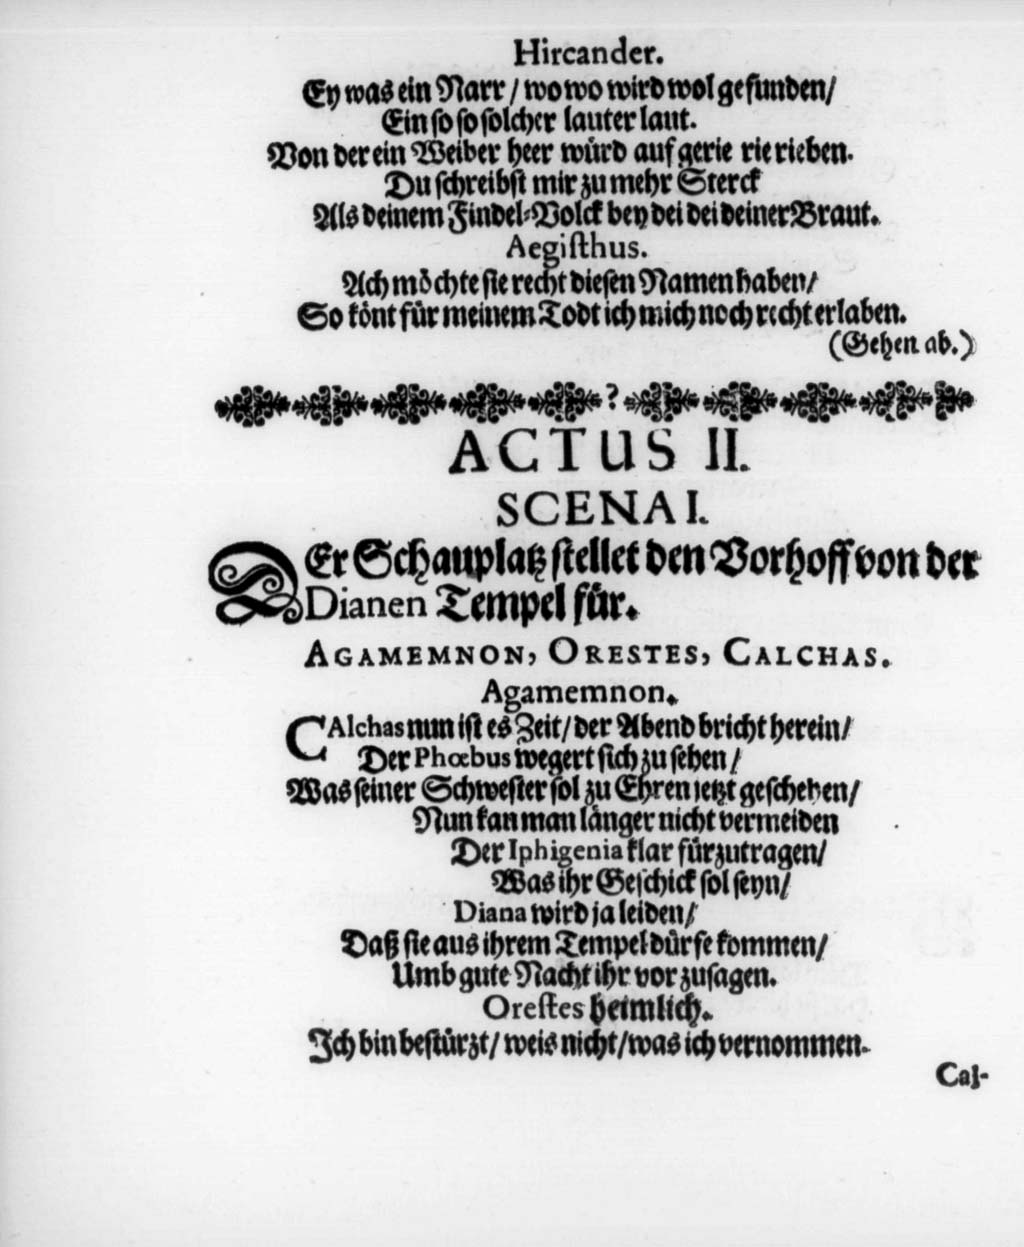 Hircander.
Ey was ein Narr / wo wo wird wol gefunden/
Ein so so solcher lauter laut.
Von der ein Weiber heer würd auf gerie rie rieben.
Du schreibst mir zu mehr Sterck
Als deinem Findel-Volck bey dei dei deiner Braut.
Aegisthus.
Ach möchte sie recht diesen Namen haben/
So könt für meinem Todt ich mich noch recht erlaben.
(Gehen ab.)
?
ACTUS II.
SCENA I.
DEr Schauplatz stellet den Vorhoff von der
Dianen Tempel für.
AGAMEMNON, ORESTES, CALCHAS.
Agamemnon.
CAlchas nun ist es Zeit/ der Abend bricht herein/
Der Phœbus wegert sich zu sehen /
Was seiner Schwester sol zu Ehren jetzt geschehen/
Nun kan man länger nicht vermeiden
Der Iphigenia klar fürzutragen/
Was ihr Geschick sol seyn/
Diana wird ja leiden/
Daß sie aus ihrem Tempel dürfe kommen/
Umb gute Nacht ihr vor zusagen.
Orestes heimlich.
Ich bin bestürzt/ weis nicht/ was ich vernommen.
Cal-